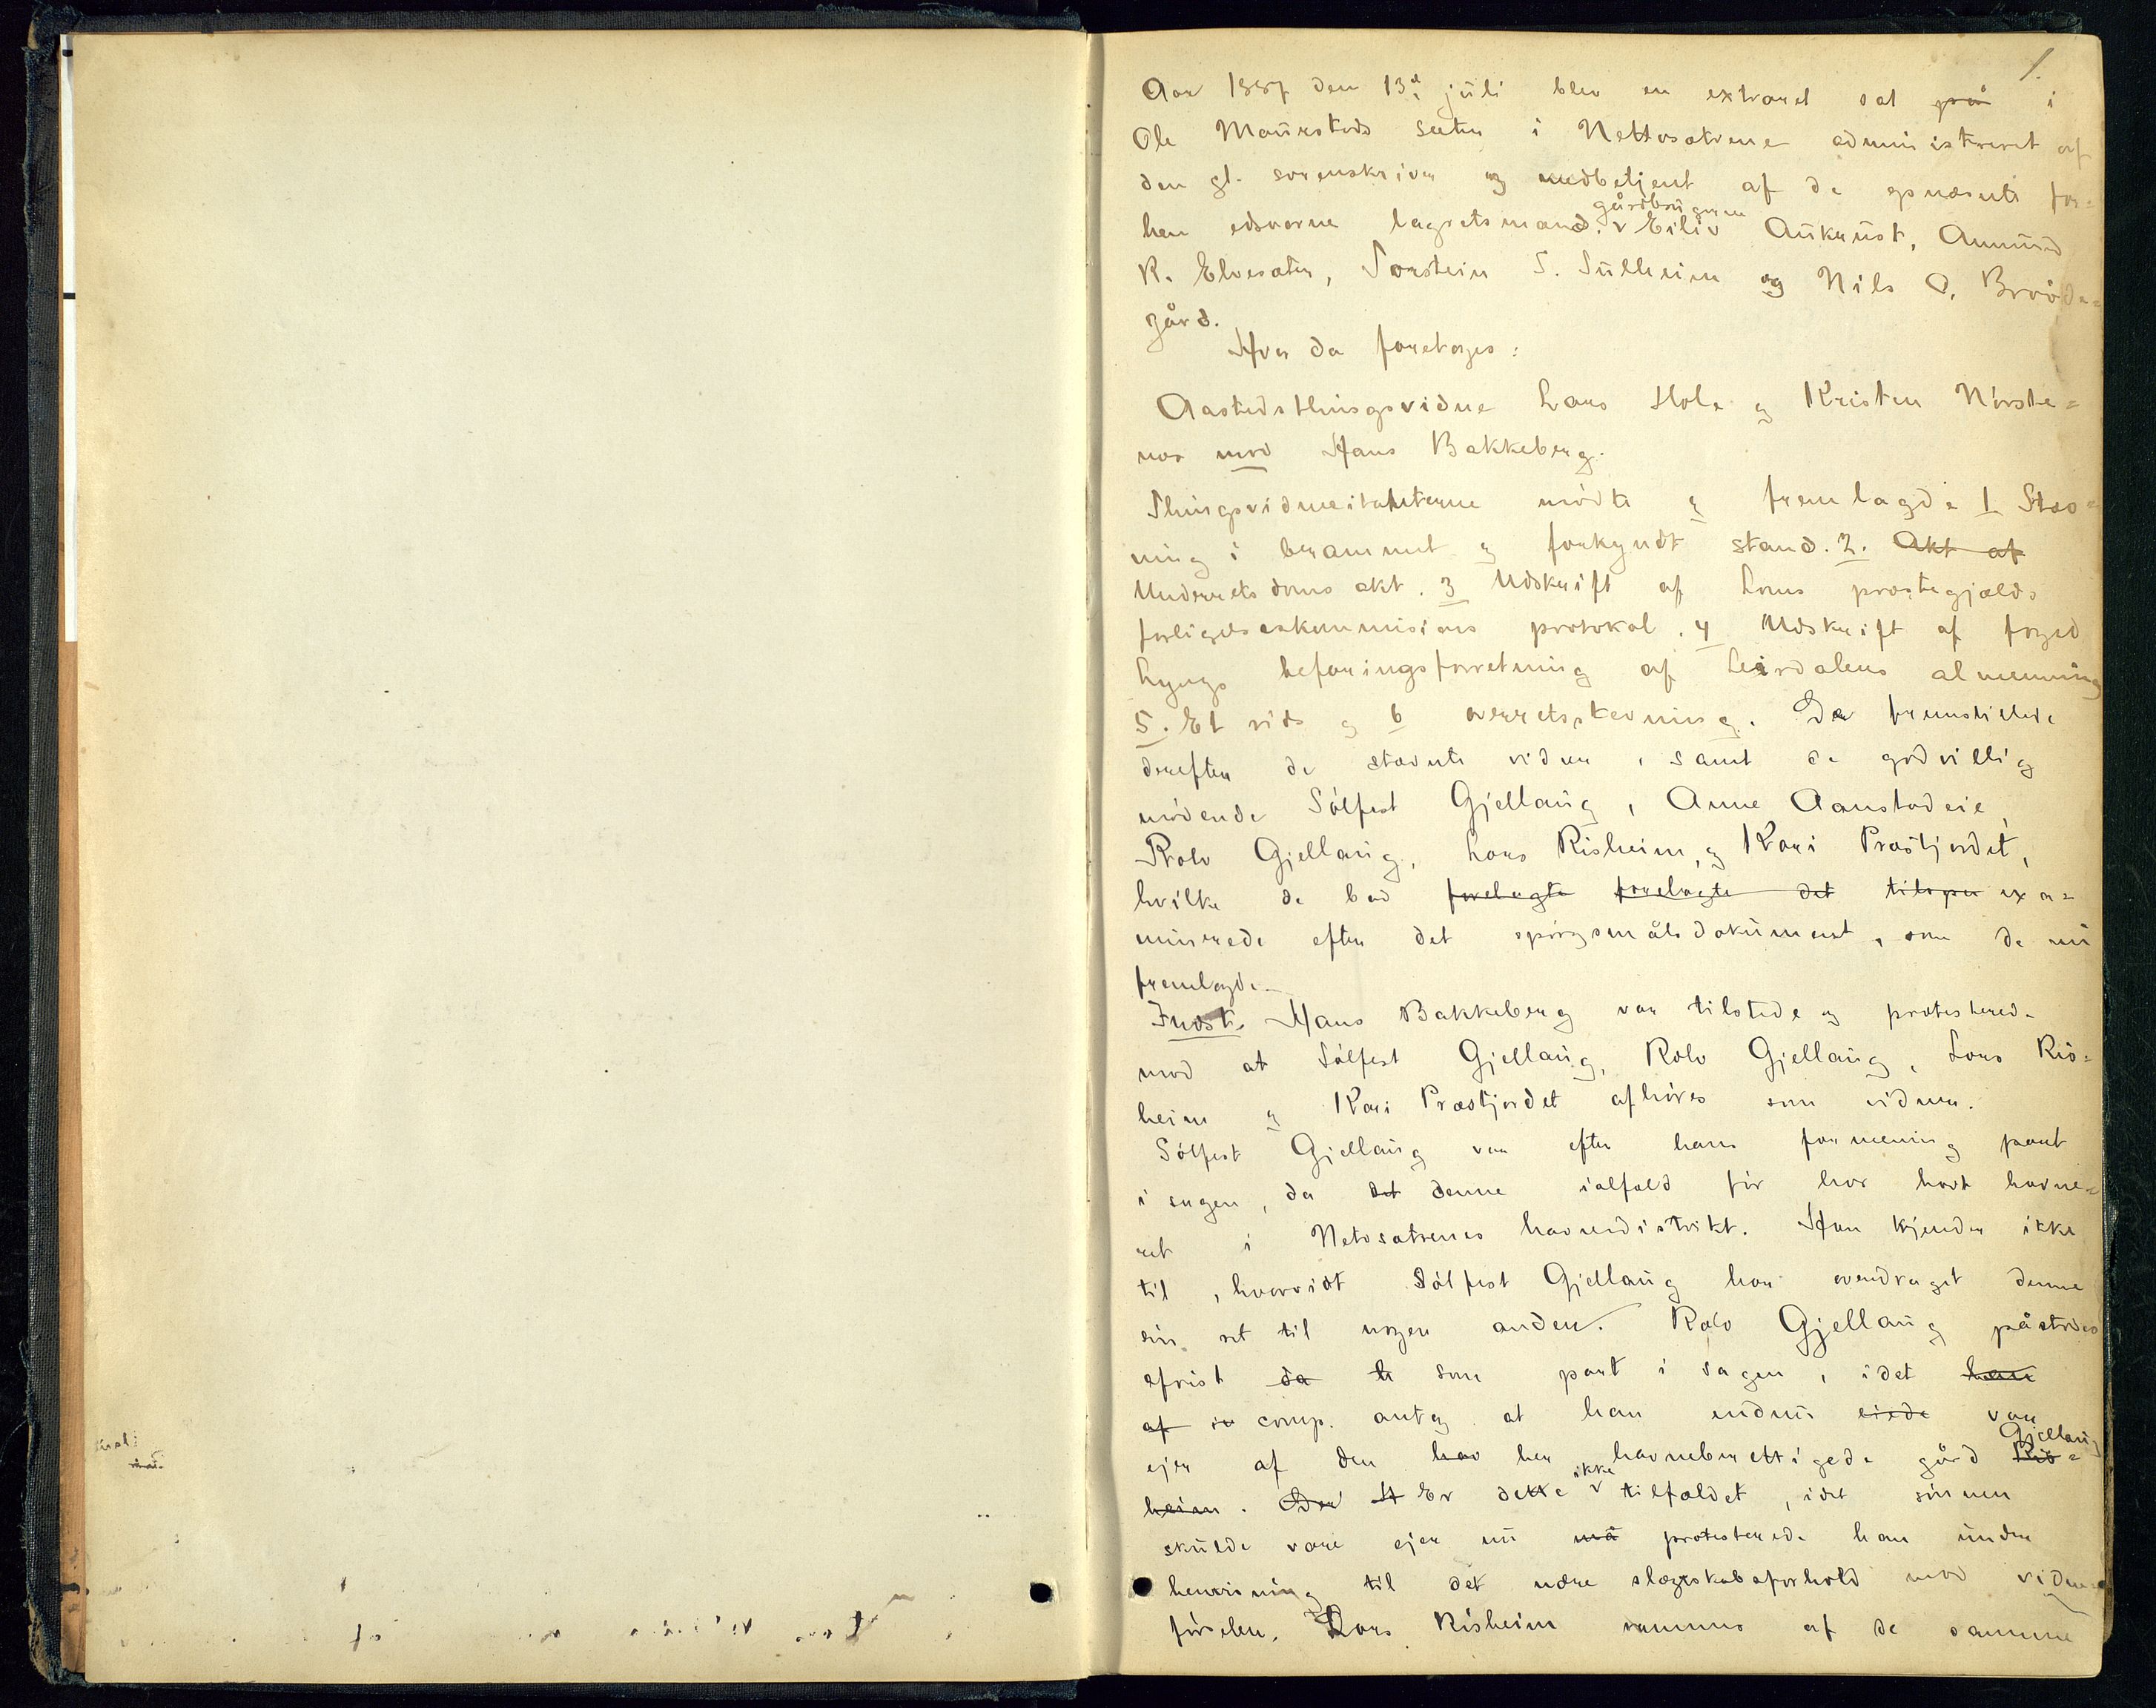 1.
Aar 1887 den 13d juli blev en extraret sat på i
Ole Maurstads sæter i Nettosætrene administreret af
den gl. sorenskriver og medbetjent af de opnævnte for=
hen edsvorne lagretsmænd. v gårdbrugerne Eiliv Aukrust, Amund
K. Elvesæter, Torstein T. Sulheim og Nils O. Brøde=
gård.
Hvor da foretoges:
Aastedsthingsvidne Lars Hole og Kristen Nørste=
nes mod Hans Bakkeberg.
Thingsvidneitanterne mødte og fremlagde 1 Stæv=
ning i berammet og forkyndt stand. 2. Akt af
Underrets doms akt. 3 Udskrift af Loms præstegjælds
forligelseskommisions protokol. 4 Udskrift af foged
Lyngs befaringsforretning af Leirdalens almenning
5. Et rids og 6 overretsstevning. De fremstillede
derefter de stævnte vidner, samt de godvillig
mødende Sølfest Gjellaug, Anne Aanstadeie,
Rolv Gjellaug, Lars Risheim, og Kari Præstjordet,
hvilke de bad forelagte forelagte det tilspu exa=
minerede efter det spørgsmålsdokument, som de nu
fremlagde.
Indst. Hans Bakkeberg var tilstede og protesterede
mod at Sølfest Gjellaug, Rolv Gjellaug, Lars Ris=
heim og Kari Præstjordet afhøres som vidner.
Sølfest Gjellaug var efter hans formening part
i sagen, da det denne ialfald før har havt havne=
ret i Netosætrenes havnedistrikt. Han kjender ikke
til, hvorvidt Sølfest Gjellaug har overdraget denne
sin ret til nogen anden. Rolv Gjellaug påstodes
afvist da h som part i sagen, idet han
af comp. antog at han endnu eiede var
ejer af den hav her havneberettigede gård Ris= Gjellaug
heim. Der Er dette v ikke tilfældet, idet sønnen
skulde være ejer nu må protesterede han under
henvisning til det nære slægtskabsforhold mod vidne=
førselen. Lars Risheim rammes af de samme